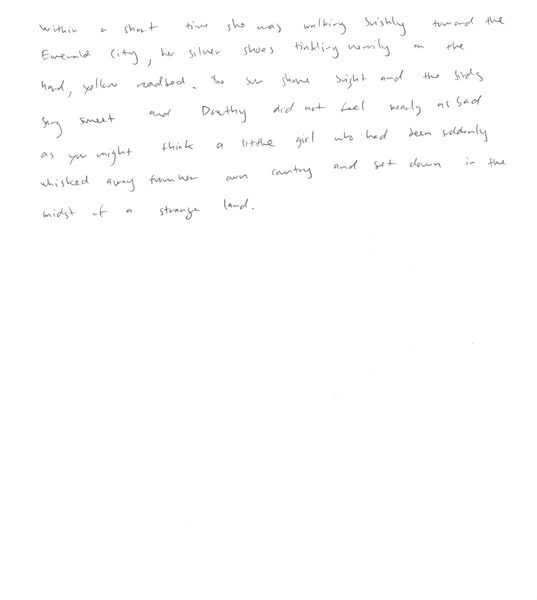 Within a short time she was walking briskly toward the
Emerald City, her silver shoes tinkling merrily on the
hard, yellow roadbed. The sun shone bright and the birds
sang sweet and Dorothy did not feel nearly as bad
as you might think a little girl who had been suddenly
whisked away from her own country and set down in the
midst of a strange land.